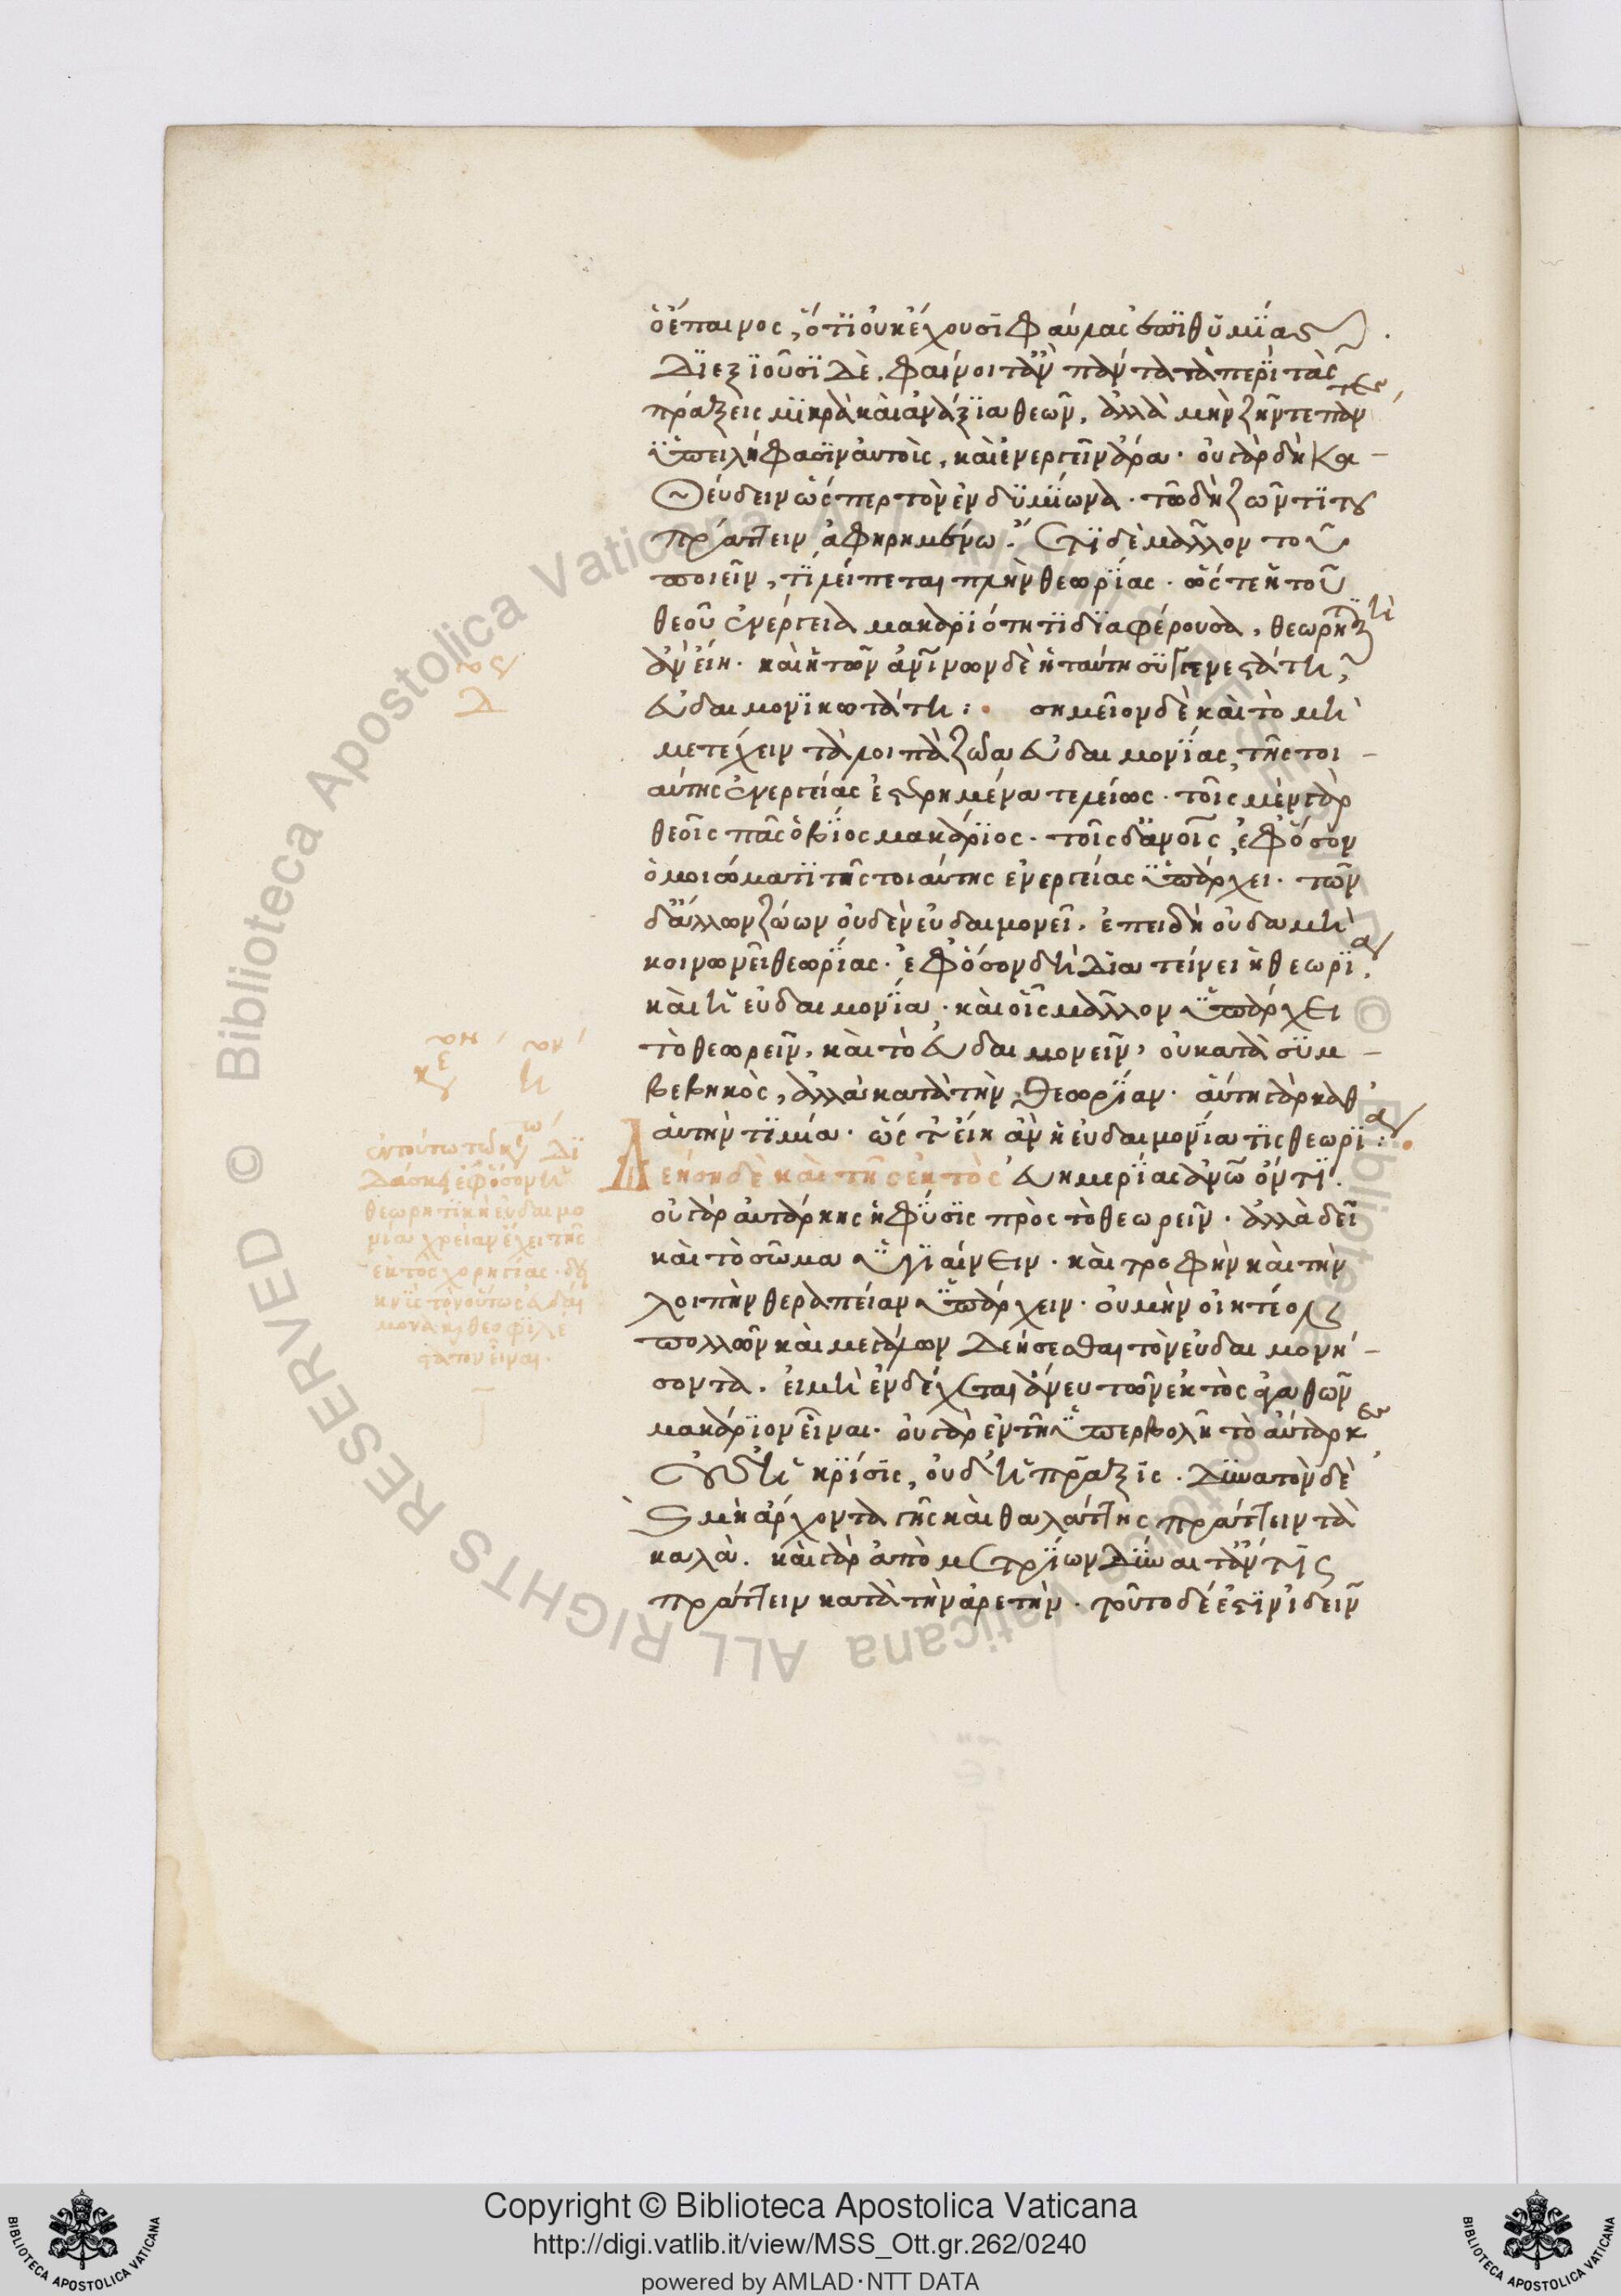 ὁ ἔπαινος, ὅτι οὐκ ἔχουσι φαύλας ἐπιθυμίας.
διεξιοῦσι δὲ, φαίνοιτ' ἂν πάντα τὰ περὶ τὰς
πράξεις μικρὰ καὶ ἀνάξια θεῶν. ἀλλὰ μὴν ζῆν τε πάντες
ὑπειλήφασιν αὐτοὺς, καὶ ἐνεργεῖν ἄρα. οὐ γὰρ δὴ κα-
θεύδειν ὥσπερ τὸν ἐνδυμίωνα. τῷ δὴ ζῶντι τοῦ
πράττειν ἀφῃρημένῳ. ἔτι δὲ μᾶλλον τοῦ
ποιεῖν, τί λείπεται πλὴν θεωρίας. ὥστε ἡ τοῦ
θεοῦ ἐνέργεια μακαριότητι διαφέρουσα, θεωρητικὴ
ἂν εἴη. καὶ ἡ τῶν ἀνθρωπίνων δὲ ἡ ταύτῃ συγγενεστάτη,
εὐδαιμονικωτάτη: σημεῖον δὲ καὶ τὸ μὴ
μετέχειν τὰ λοιπὰ ζῶα εὐδαιμονίας, τῆς τοι-
αύτης ἐνεργείας ἐστερημένα τελείως. τοῖς μὲν γὰρ
θεοῖς πᾶς ὁ βίος μακάριος. τοῖς δ' ἀνοις, ἐφόσον
ὁμοίωμά τι τῆς τοιαύτης ἐνεργείας ὑπάρχει. τῶν
δ' ἄλλων ζώων οὐδὲν εὐδαιμονεῖ. ἐπειδὴ οὐδαμῆ
κοινωνεῖ θεωρίας. ἐφόσον δὴ διατείνει ἡ θεωρία,
καὶ ἡ εὐδαιμονία. καὶ οἷς μᾶλλον ὑπάρχει
τὸ θεωρεῖν, καὶ τὸ εὐδαιμονεῖν, οὐ κατὰ συμ-
βεβηκὸς, ἀλλὰ κατὰ τὴν θεωρίαν. αὕτη γὰρ καθ'
αὑτὴν τιμία. ὥστ' εἴη ἂν ἡ εὐδαιμονία τὶς θεωρία:
Δεήσῃ δὲ καὶ τῆς ἐκτὸς εὐημερίας ἀνῶ ὄντι.
οὐ γὰρ αὐτάρκης ἡ φύσις πρὸς τὸ θεωρεῖν. ἀλλὰ δεῖ
καὶ τὸ σῶμα ὑγιαίνειν. καὶ τροφὴν καὶ τὴν
λοιπὴν θεραπείαν ὑπάρχειν. οὐ μὴν οἰητέον
πολλῶν καὶ μεγάλων δεήσεσθαι τὸν εὐδαιμονή-
σοντα. εἰ μὴ ἐνδέχεται ἄνευ τῶν ἐκτὸς ἀγαθῶν
μακάριον εἶναι. οὐ γὰρ ἐν τῇ ὑπερβολῇ τὸ αὔταρκες,
οὐδ' ἡ κρίσις, οὐδ' ἡ πρᾶξις. δυνατὸν δὲ
καὶ μὴ ἄρχοντα γῆς καὶ θαλάττης πράττειν τὰ
καλά. καὶ γὰρ ἀπὸ μετρίων δύναιτ' ἄν τις
πράττειν κατὰ τὴν ἀρετήν. τοῦτο δέ ἐστιν ἰδεῖν
ἐν τούτω τῶ κεφαλαίω δι
δάσκει ἐφόσον ἡ
θεωρητικὴ εὐδαιμο
νία χρείαν ἔχει τῆς
ἐκτὸς χορηγίας.
Copyright © Biblioteca Apostolica Vaticana
http://digi.vatlib.it/view/MSS_Ott.gr.262/0240
powered by AMLAD·NTT DATA
© Biblioteca Apostolica Vaticana ALL RIGHTS RESERVED
BIBLIOTECA APOSTOLICA VATICANA
BIBLIOTECA APOSTOLICA VATICANA